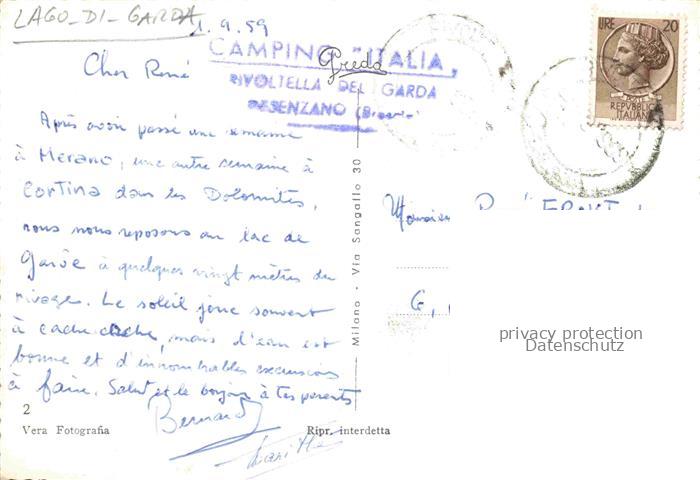 LAGO-DI-GARDA
1.9.59
CAMPING "ITALIA,
RIVOLTELLA DEL GARDA
DESENZANO (Brescia)
LIRE 20
REPVBBLICA
ITALIANA
Cher René
Après avoir passé une semaine
à Merano, une autre semaine à
Cortina dans les Dolomites,
nous nous reposons au lac de
Garde à quelques vingt mètres du
rivage. Le soleil joue souvent
à cache cache, mais l'eau est
bonne et d'innombrables excursions
à faire. Salut et le bonjour à tes parents
Bernard
Monsieur
G,
Milano - Via Sangallo 30
privacy protection
Datenschutz
2
Vera Fotografia
Ripr. interdetta